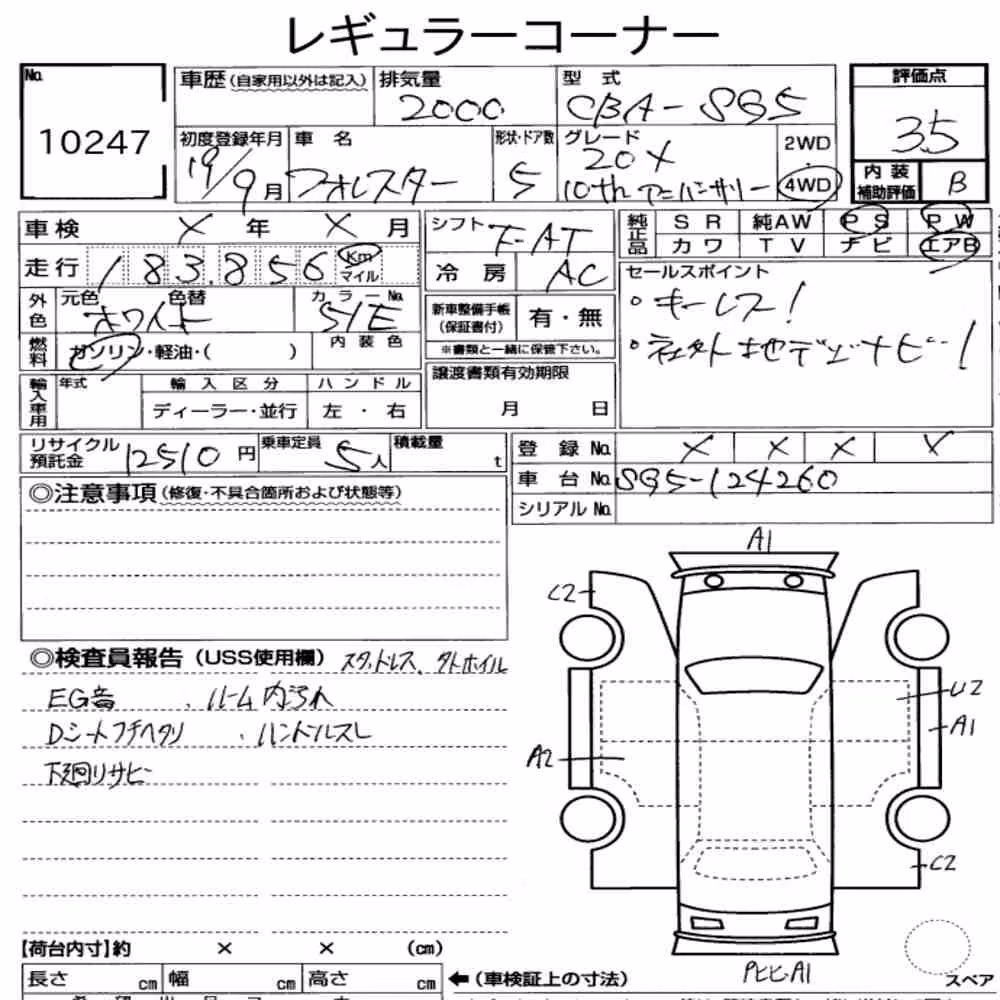 レギュラーコーナー
No.
10247
車歴(自家用以外は記入)
排気量
2000
型式
CBA-SG5
評価点
3.5
初度登録年月
19/9月
車名
フォレスター
形状・ドア数
5
グレード
20X
10th アニバーサリー
2WD
4WD
内装
補助評価
B
車検 × 年 × 月
シフト
F-AT
純正品
SR 純AW PS PW
カワ TV ナビ エアB
走行 183,856 Km
マイル
冷房 AC
セールスポイント
・キーレス!
・社外地デジナビ!
外色
元色 色替
ホワイト
カラーNo.
51E
新車整備手帳
(保証書付)
有・無
※書類と一緒に保管下さい。
燃料
ガソリン・軽油・( )
内装色
輸入車用
年式
輸入区分
ディーラー・並行
ハンドル
左・右
譲渡書類有効期限
月 日
リサイクル
預託金
12510円
乗車定員
5人
積載量
t
登録No. × × × ×
車台No. SG5-124260
シリアルNo.
◎注意事項(修復・不具合箇所および状態等)
◎検査員報告(USS使用欄) スタッドレス、タトホイル
EG音 、ルーム内汚れ
Dシートフチヘタリ 、ハンドルスレ
下廻リサビ
A1
C2
U2
A1
A2
C2
PヒビA1
スペア
【荷台内寸】約 × × (cm)
長さ cm 幅 cm 高さ cm
←(車検証上の寸法)